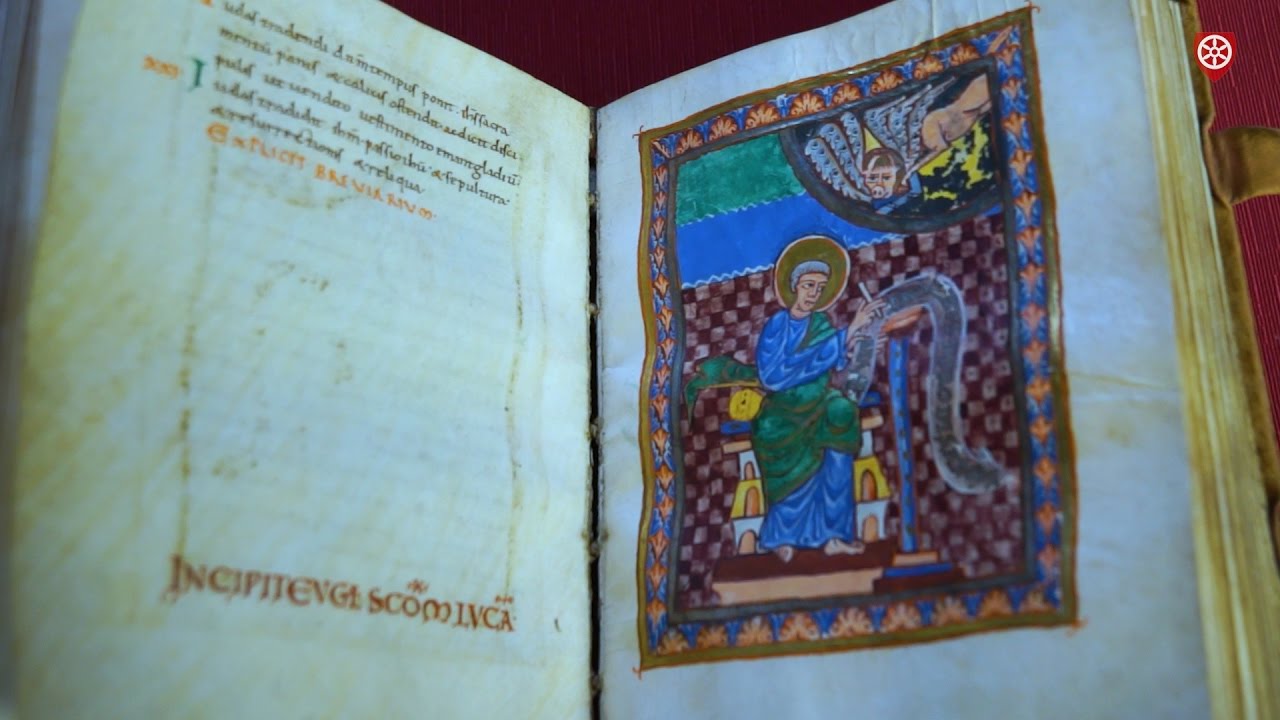 udas tradendi dnm tempus ponit. ihs sacra
mentu panis & calicis ostendit. ac dicit disci
XXI. Ipulis ut vendito vestimento emant gladiu
iudas tradidit ihm passioibus & sepultura.
& resurrectionis & reliqua.
EXPLICIT BREVIARIUM.
INCIPIT EVGL SCDM LUCA